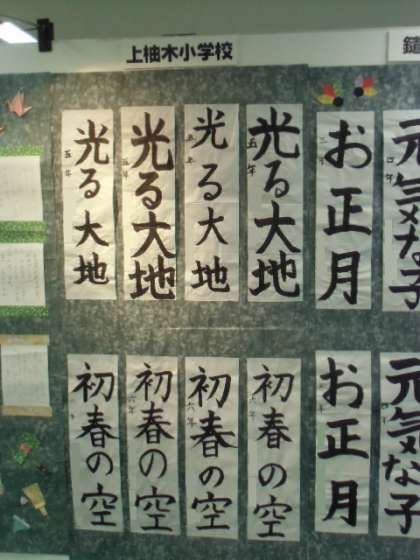 上柚木小学校
光る大地
五年
光る大地
五年
光る大地
五年
光る大地
五年
お正月
三年
元気な子
四年
初春の空
初春の空
六年
初春の空
六年
初春の空
六年
お正月
元気な子